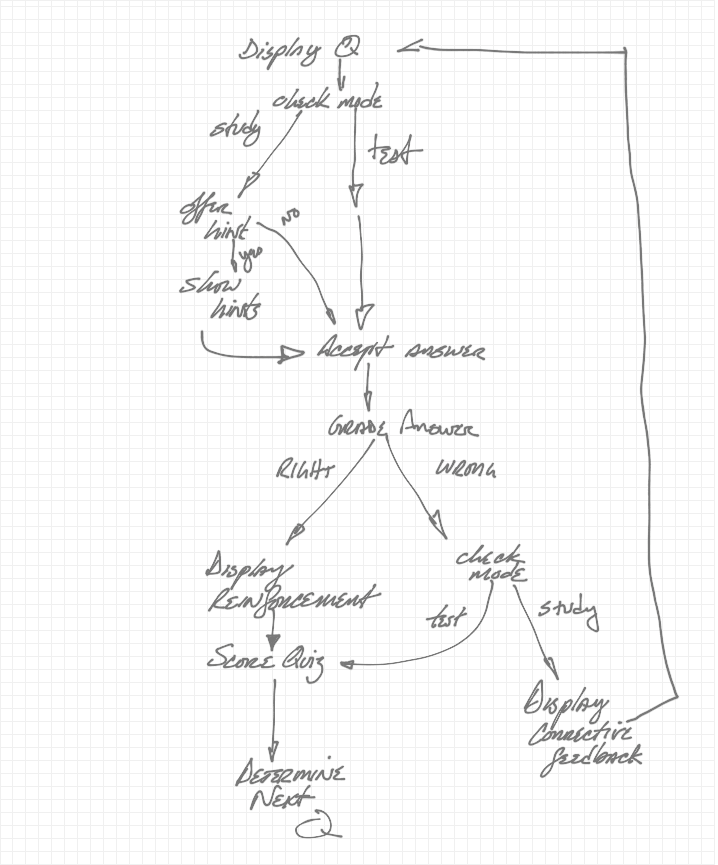 Display Q
check mode
study
test
offer
hint
no
yes
show
hints
Accept answer
Grade Answer
Right
Wrong
Display
Reinforcement
check
mode
test
study
Score Quiz
Display
Corrective
feedback
Determine
Next
Q